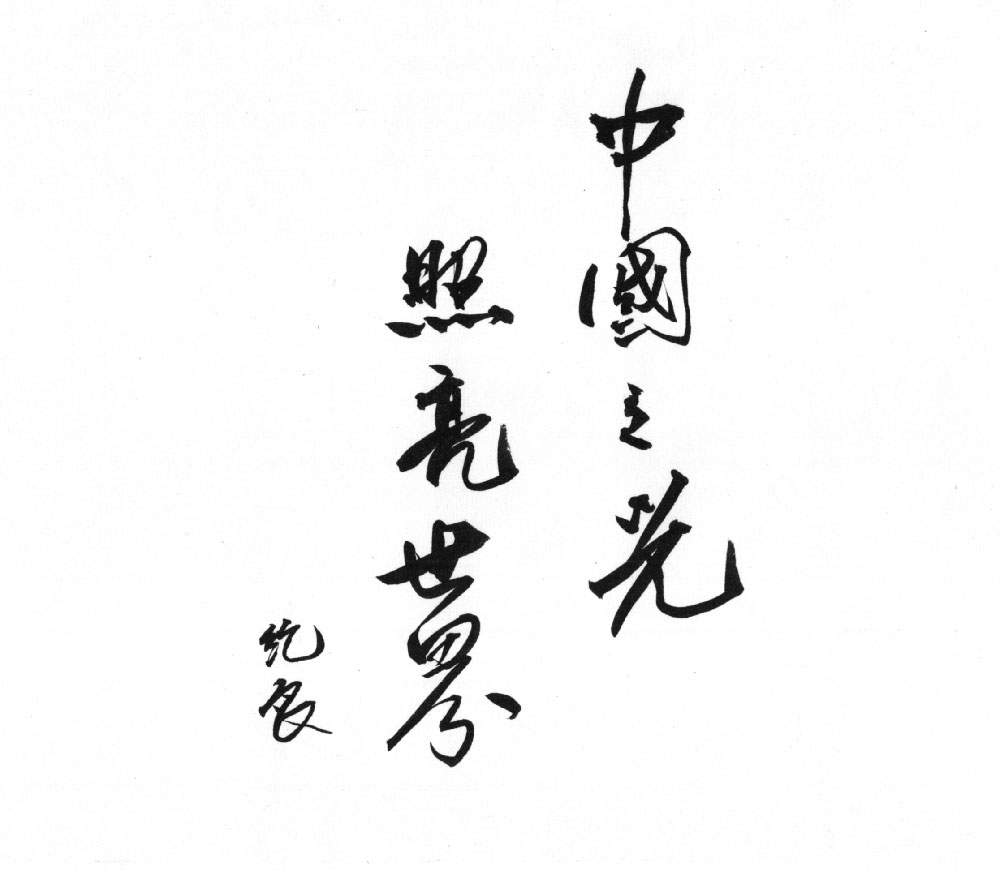 中國之光
照亮世界